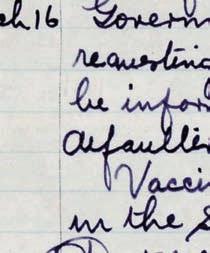 ch 16 Governm
requesting
be infor
defaultin
Vacci
in the S